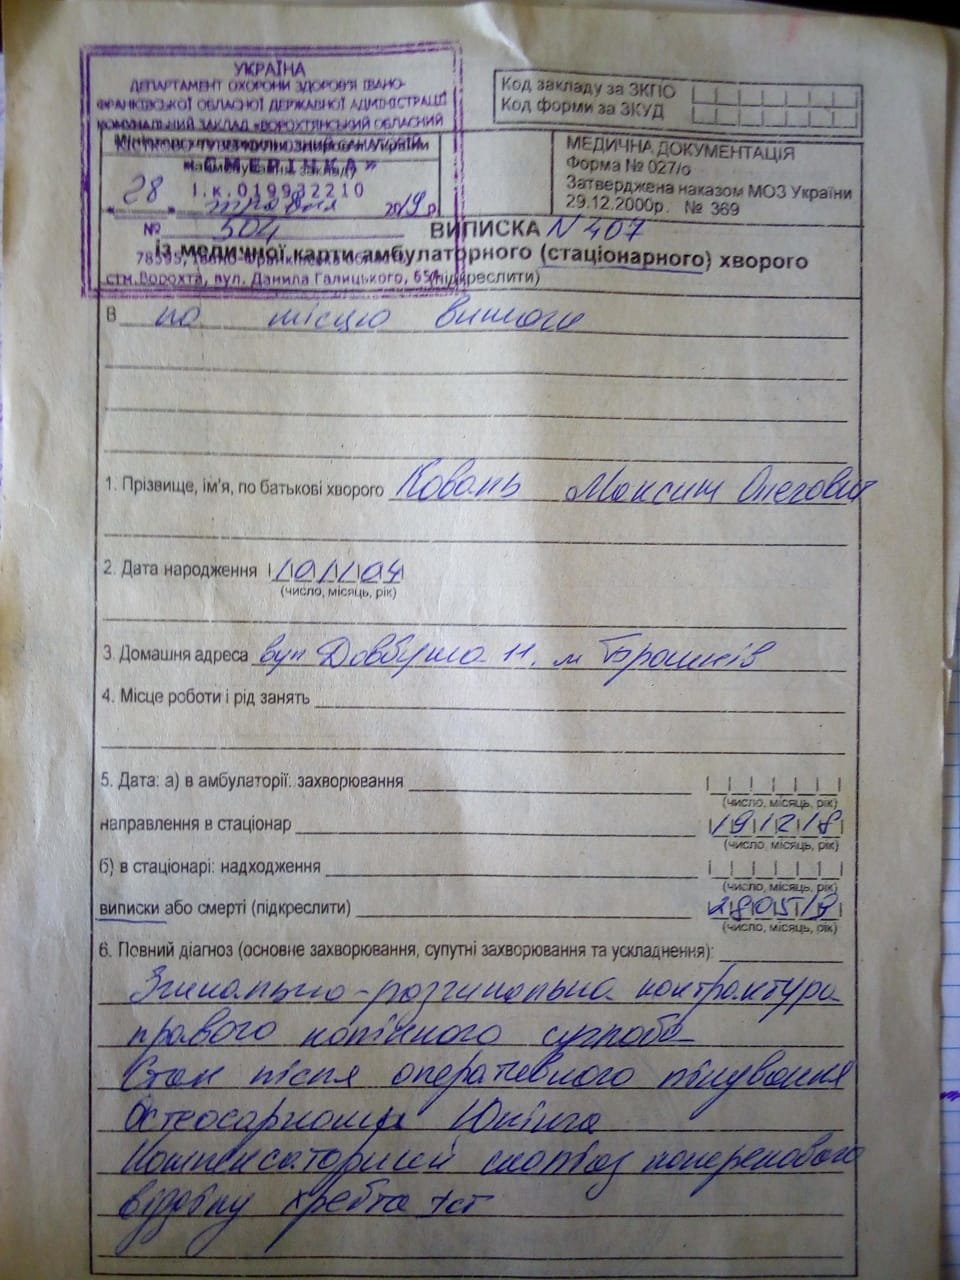 УКРАЇНА
ДЕПАРТАМЕНТ ОХОРОНИ ЗДОРОВ'Я ІВАНО-
ФРАНКІВСЬКОЇ ОБЛАСНОЇ ДЕРЖАВНОЇ АДМІНІСТРАЦІЇ
КОМУНАЛЬНИЙ ЗАКЛАД «ВОРОХТЯНСЬКИЙ ОБЛАСНИЙ
найменування закладу
«СМЕРІЧКА»
І.к.01993221 0
«28» травня 2019 р.
№ 504
78595,
стм.Ворохта, вул. Данила Галицького, 65
Код закладу за ЗКПО
Код форми за ЗКУД
МЕДИЧНА ДОКУМЕНТАЦІЯ
Форма № 027/о
Затверджена наказом МОЗ України
29.12.2000р. № 369
ВИПИСКА N 407
із медичної карти амбулаторного (стаціонарного) хворого
(підкреслити)
В по місцю вимоги
1. Прізвище, ім'я, по батькові хворого Ковань Максим Олегович
2. Дата народження 10 1 04
(число, місяць, рік)
3. Домашня адреса вул Довбуша 11. м Брошнів
4. Місце роботи і рід занять
5. Дата: а) в амбулаторії: захворювання
(число, місяць, рік)
направлення в стаціонар 19 12 18
(число, місяць, рік)
б) в стаціонарі: надходження
(число, місяць, рік)
виписки або смерті (підкреслити) 28 05 19
(число, місяць, рік)
6. Повний діагноз (основне захворювання, супутні захворювання та ускладнення):
Згинально-розгинальна контрактура
правого колінного суглоба
Стан після оперативного лікування
Остеосаркома Юнінга
Компенсаторний сколіоз поперекового
відділу хребта Іст